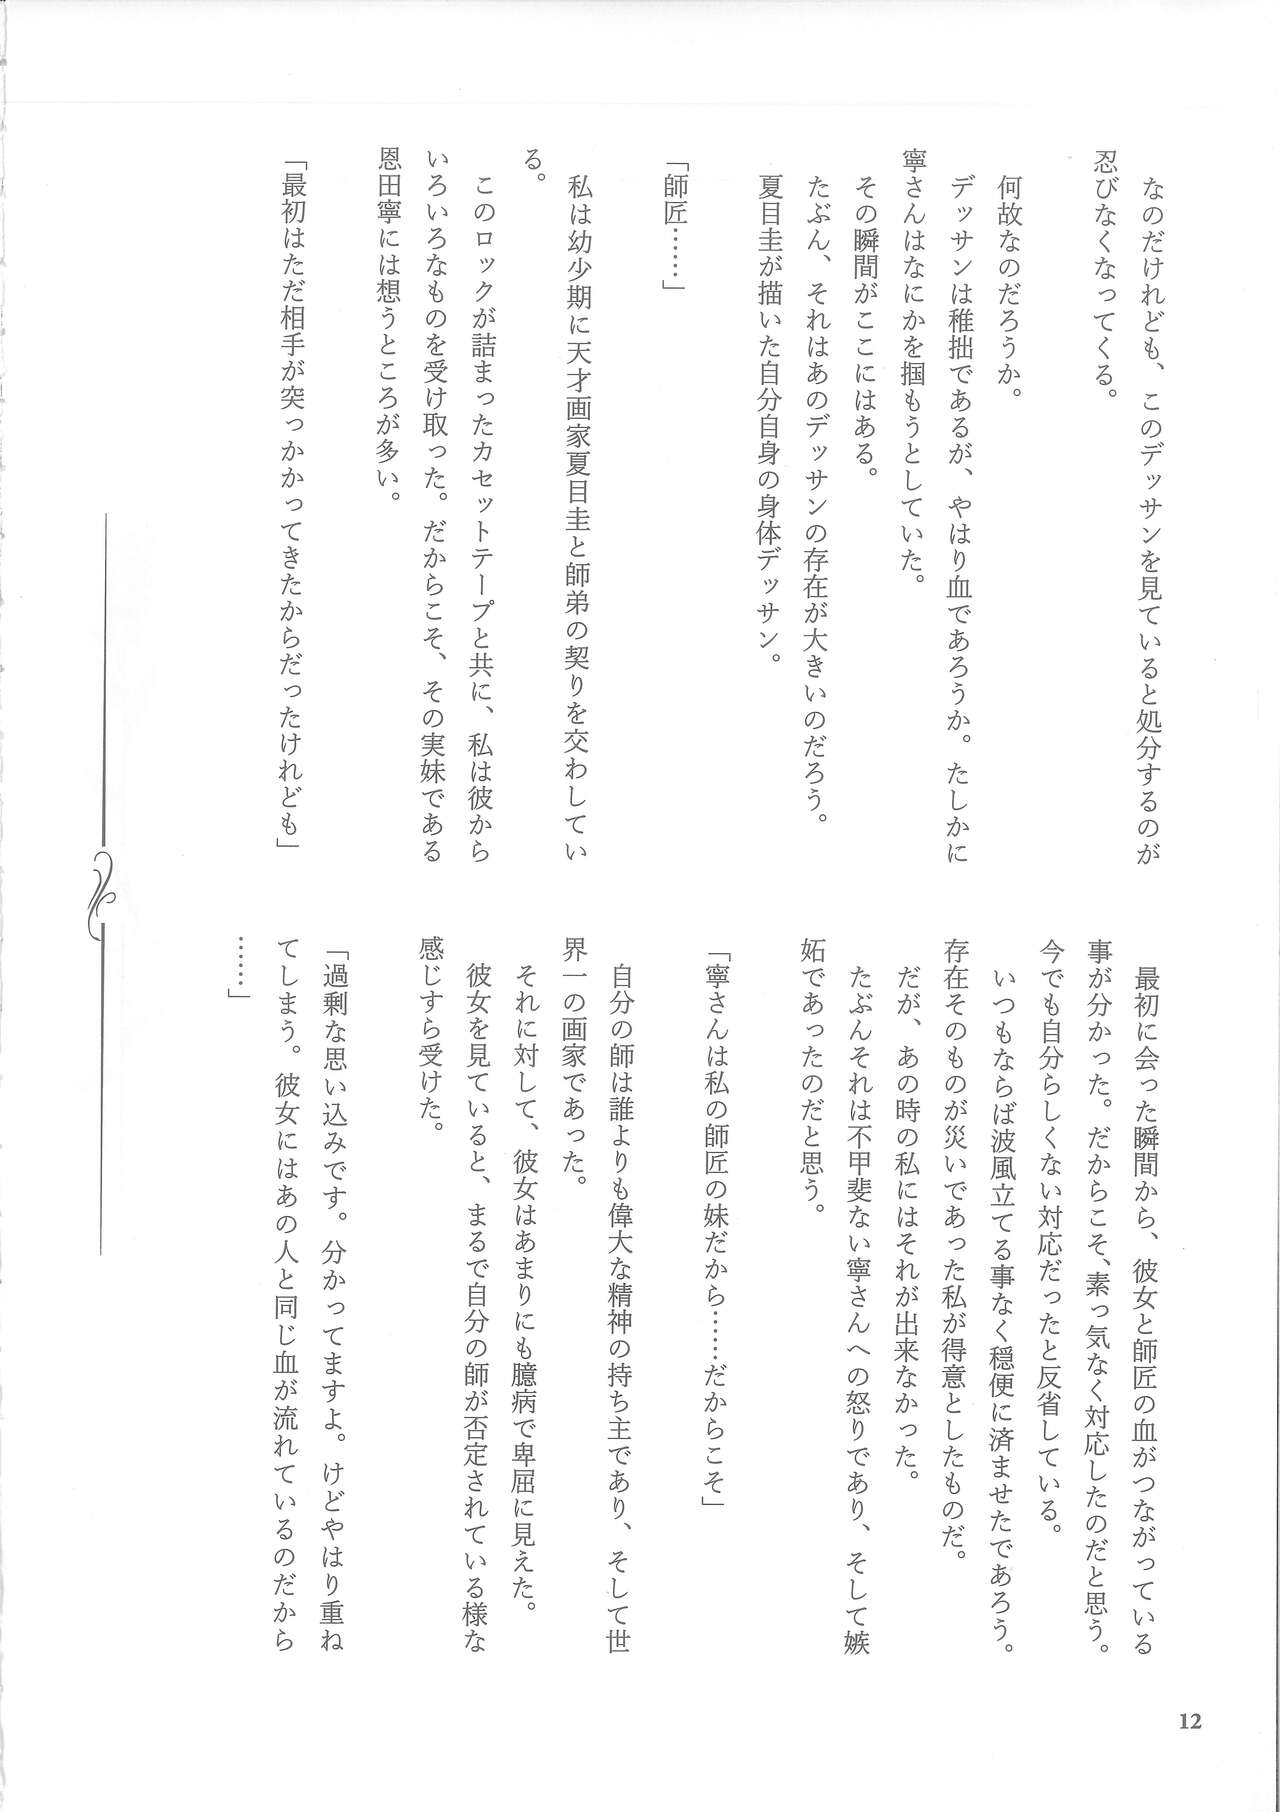 なのだけれども、このデッサンを見ていると処分するのが
忍びなくなってくる。
何故なのだろうか。
デッサンは稚拙であるが、やはり血であろうか。たしかに
寧さんはなにかを掴もうとしていた。
その瞬間がここにはある。
たぶん、それはあのデッサンの存在が大きいのだろう。
夏目圭が描いた自分自身の身体デッサン。
「師匠……」
私は幼少期に天才画家夏目圭と師弟の契りを交わしてい
る。
このロックが詰まったカセットテープと共に、私は彼から
いろいろなものを受け取った。だからこそ、その実妹である
恩田寧には想うところが多い。
「最初はただ相手が突っかかってきたからだったけれども」
最初に会った瞬間から、彼女と師匠の血がつながっている
事が分かった。だからこそ、素っ気なく対応したのだと思う。
今でも自分らしくない対応だったと反省している。
いつもならば波風立てる事なく穏便に済ませたであろう。
存在そのものが災いであった私が得意としたものだ。
だが、あの時の私にはそれが出来なかった。
たぶんそれは不甲斐ない寧さんへの怒りであり、そして嫉
妬であったのだと思う。
「寧さんは私の師匠の妹だから……だからこそ」
自分の師は誰よりも偉大な精神の持ち主であり、そして世
界一の画家であった。
それに対して、彼女はあまりにも臆病で卑屈に見えた。
彼女を見ていると、まるで自分の師が否定されている様な
感じすら受けた。
「過剰な思い込みです。分かってますよ。けどやはり重ね
てしまう。彼女にはあの人と同じ血が流れているのだから
……」
12